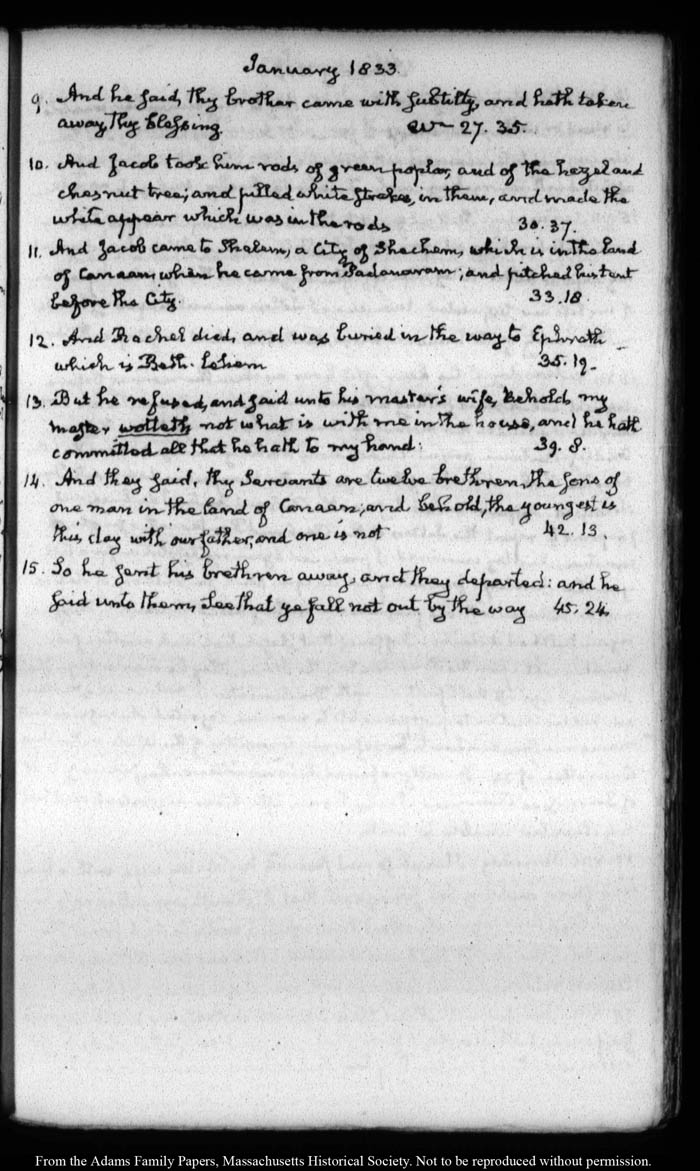 January 1833.
9. And he said, thy brother came with subtilty, and hath taken
away thy blessing. 27. 35.
10. And Jacob took him rods of green poplar, and of the hazel and
chesnut tree; and pilled white strakes, in them, and made the
white appear which was in the rods 30. 37.
11. And Jacob came to Shalem, a City of Shechem, which is in the land
of Canaan, when he came from Padanaram; and pitched his tent
before the City. 33. 18.
12. And Rachel died, and was buried in the way to Ephrath
which is Beth-lehem 35. 19.
13. But he refused, and said unto his master's wife, Behold, my
master wotteth not what is with me in the house, and he hath
committed all that he hath to my hand: 39. 8.
14. And they said, thy Servants are twelve brethren, the sons of
one man in the land of Canaan; and behold, the youngest is
this day with our father, and one is not 42. 13.
15. So he sent his brethren away, and they departed: and he
said unto them, See that ye fall not out by the way 45. 24.
From the Adams Family Papers, Massachusetts Historical Society. Not to be reproduced without permission.